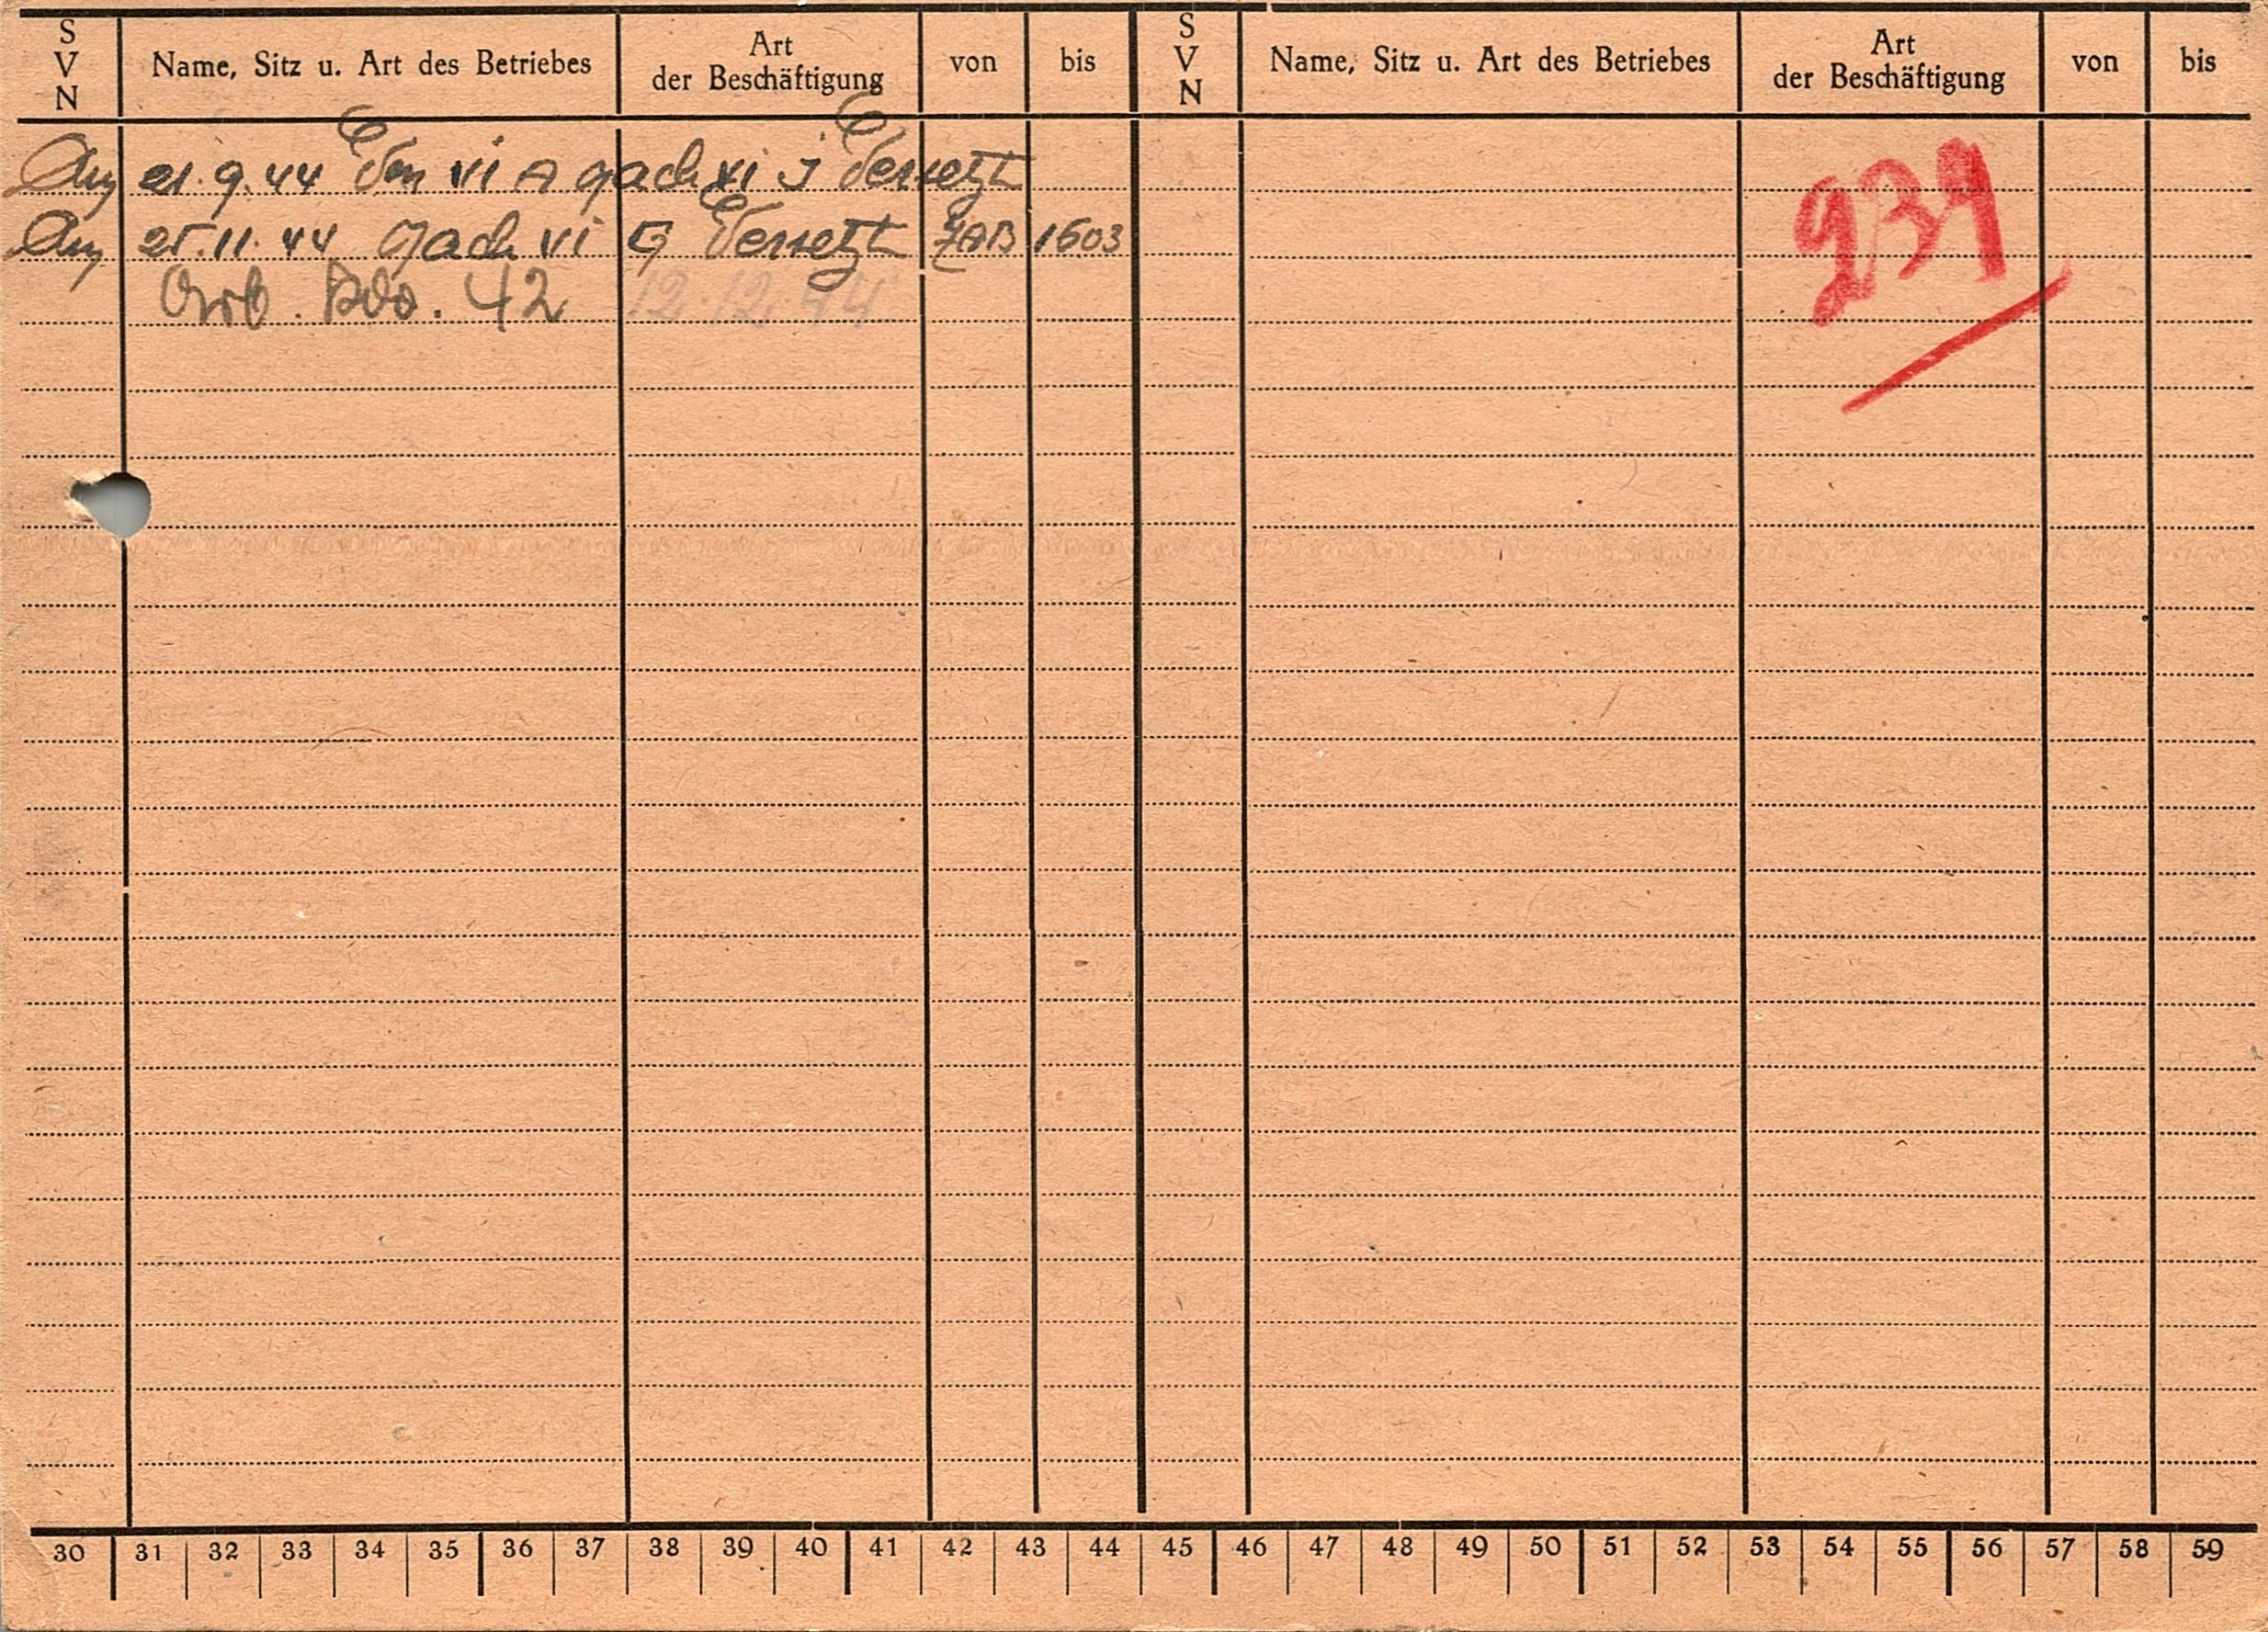 S V N Name, Sitz u. Art des Betriebes Art der Beschäftigung von bis S V N Name, Sitz u. Art des Betriebes Art der Beschäftigung von bis
Am 21.9.44 Von VI A nach XI J Versetzt
Am 25.11.44 Nach VI G Versetzt ZAB 1603
Arb. Kdo. 42 12.12.44
239
30 31 32 33 34 35 36 37 38 39 40 41 42 43 44 45 46 47 48 49 50 51 52 53 54 55 56 57 58 59